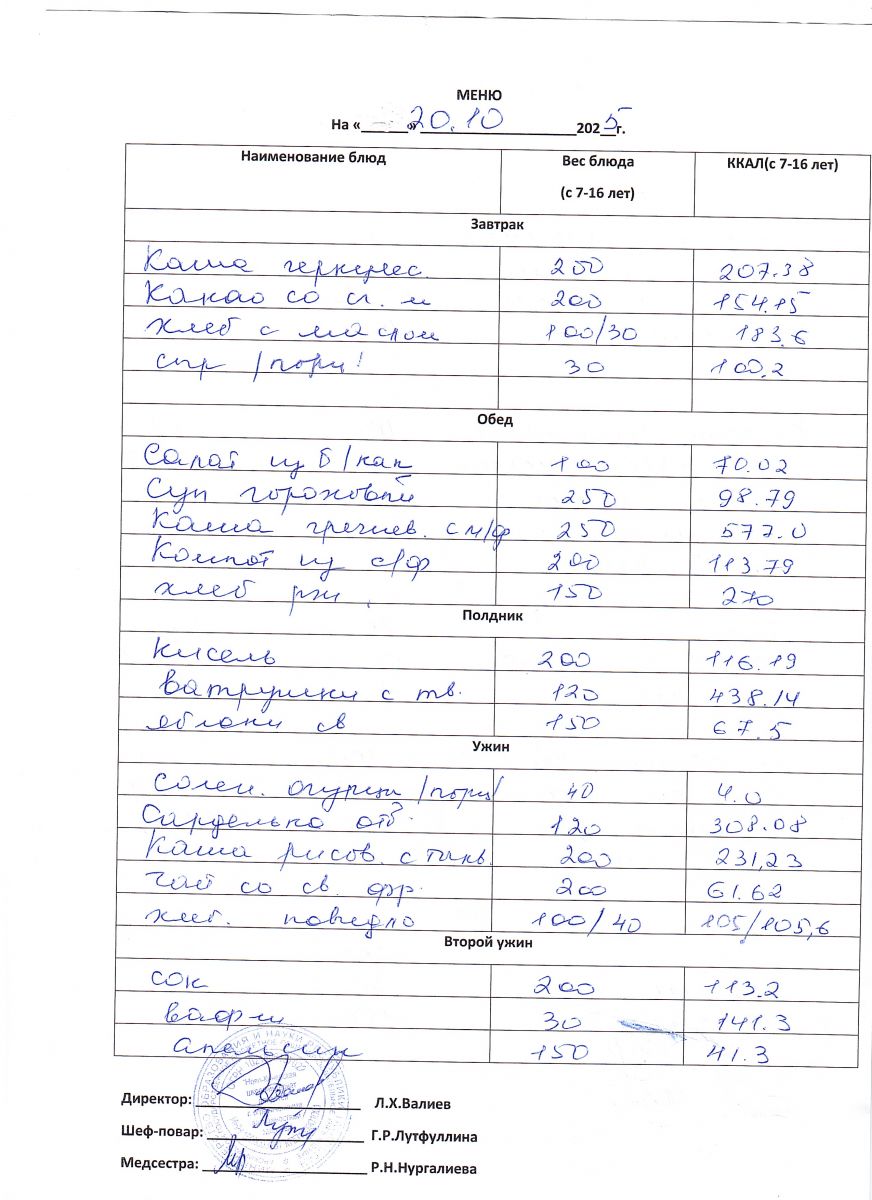 МЕНЮ
На «      » 20.10 2025 г.
Наименование блюд Вес блюда (с 7-16 лет) ККАЛ(с 7-16 лет)
Завтрак
Каша геркулес. 200 207.38
Какао со сг. м 200 154.15
Хлеб с маслом 100/30 183.6
сыр /порц/ 30 100.2
Обед
Салат из б/кап 100 70.02
Суп гороховый 250 98.79
Каша гречнев. с м/ф 250 577.0
Компот из с/ф 200 113.79
хлеб рж. 150 270
Полдник
Кисель 200 116.19
Ватрушки с тв. 120 438.14
яблоки св 150 67.5
Ужин
Солен. огурцы /порц/ 40 4.0
Сарделька отв. 120 308.08
Каша рисов. с тыкв. 200 231,23
Чай со св. фр. 200 61.62
хлеб. повидло 100/40 105/105,6
Второй ужин
сок 200 113.2
вафли 30 141.3
апельсин 150 41.3
Директор: Л.Х.Валиев
Шеф-повар: Г.Р.Лутфуллина
Медсестра: Р.Н.Нургалиева